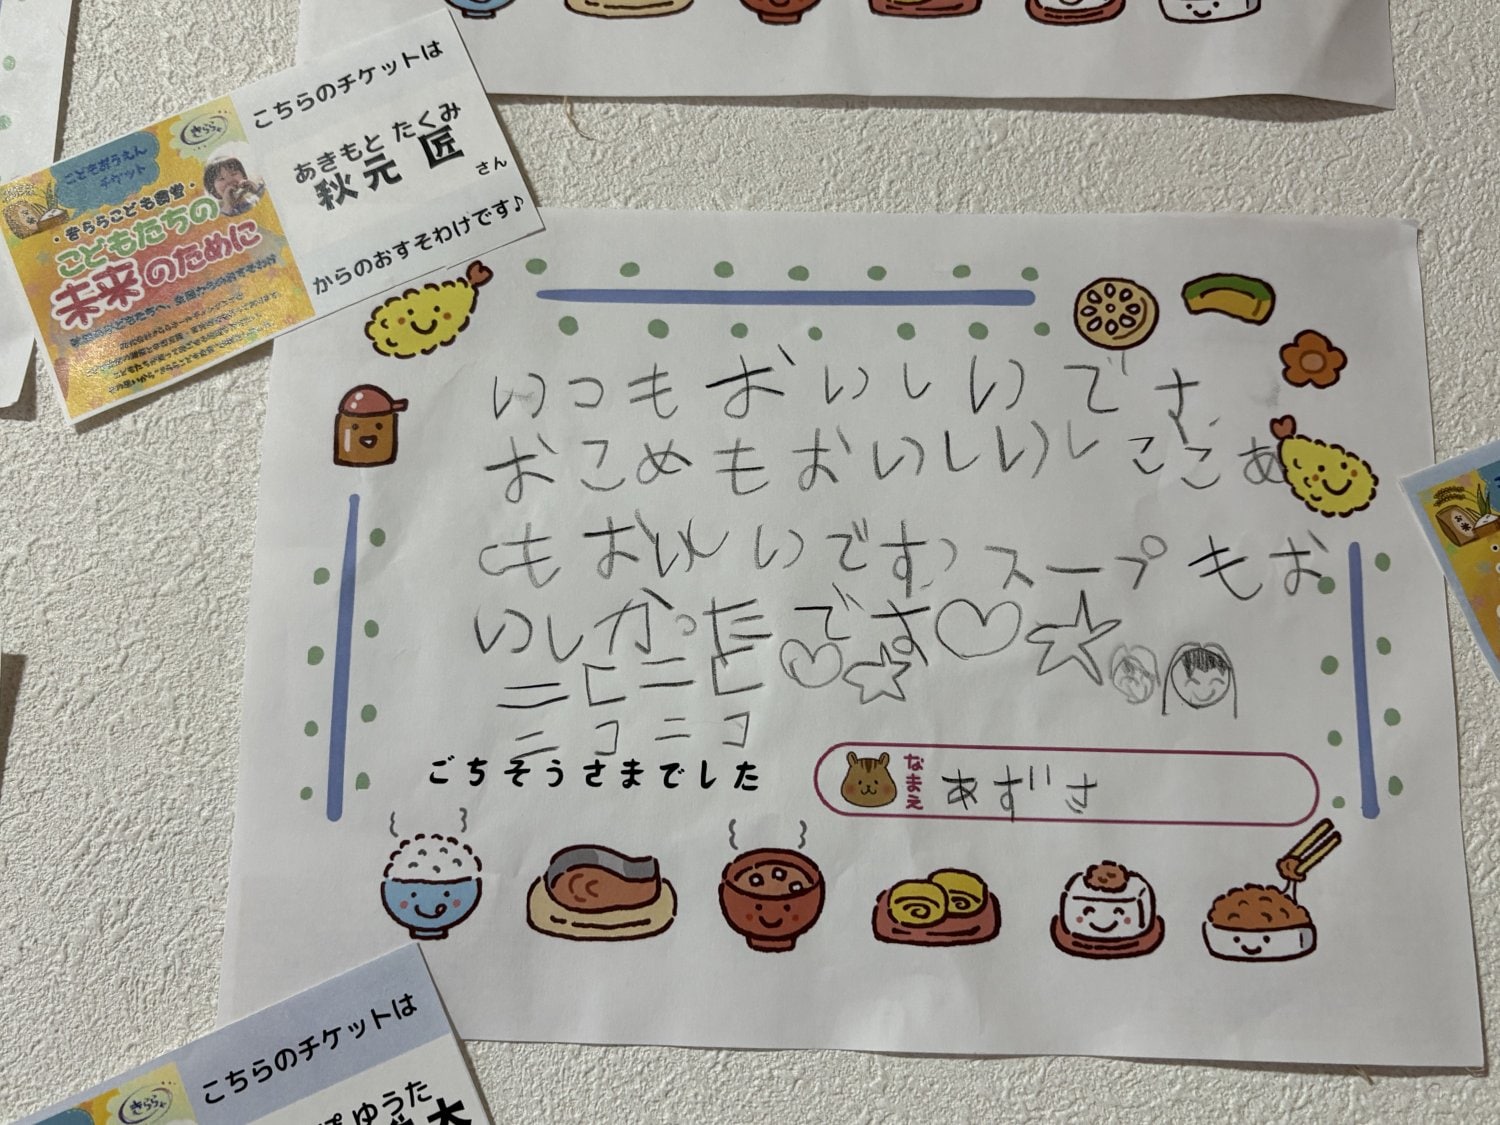 こちらのチケットは
あきもと たくみ
秋元 匠
さん
からのおすそわけです♪
きらら
こどもおうえん
チケット
・きららこども食堂・
こどもたちの
未来のために
いつもおいしいです
おこめもおいしいしここあ
もおいしいです。スープもお
いしかったです♡☆
ニコニコ♡☆
ニコニコ
ごちそうさまでした
なまえ
あずさ
こちらのチケットは
ゆうた
きらら